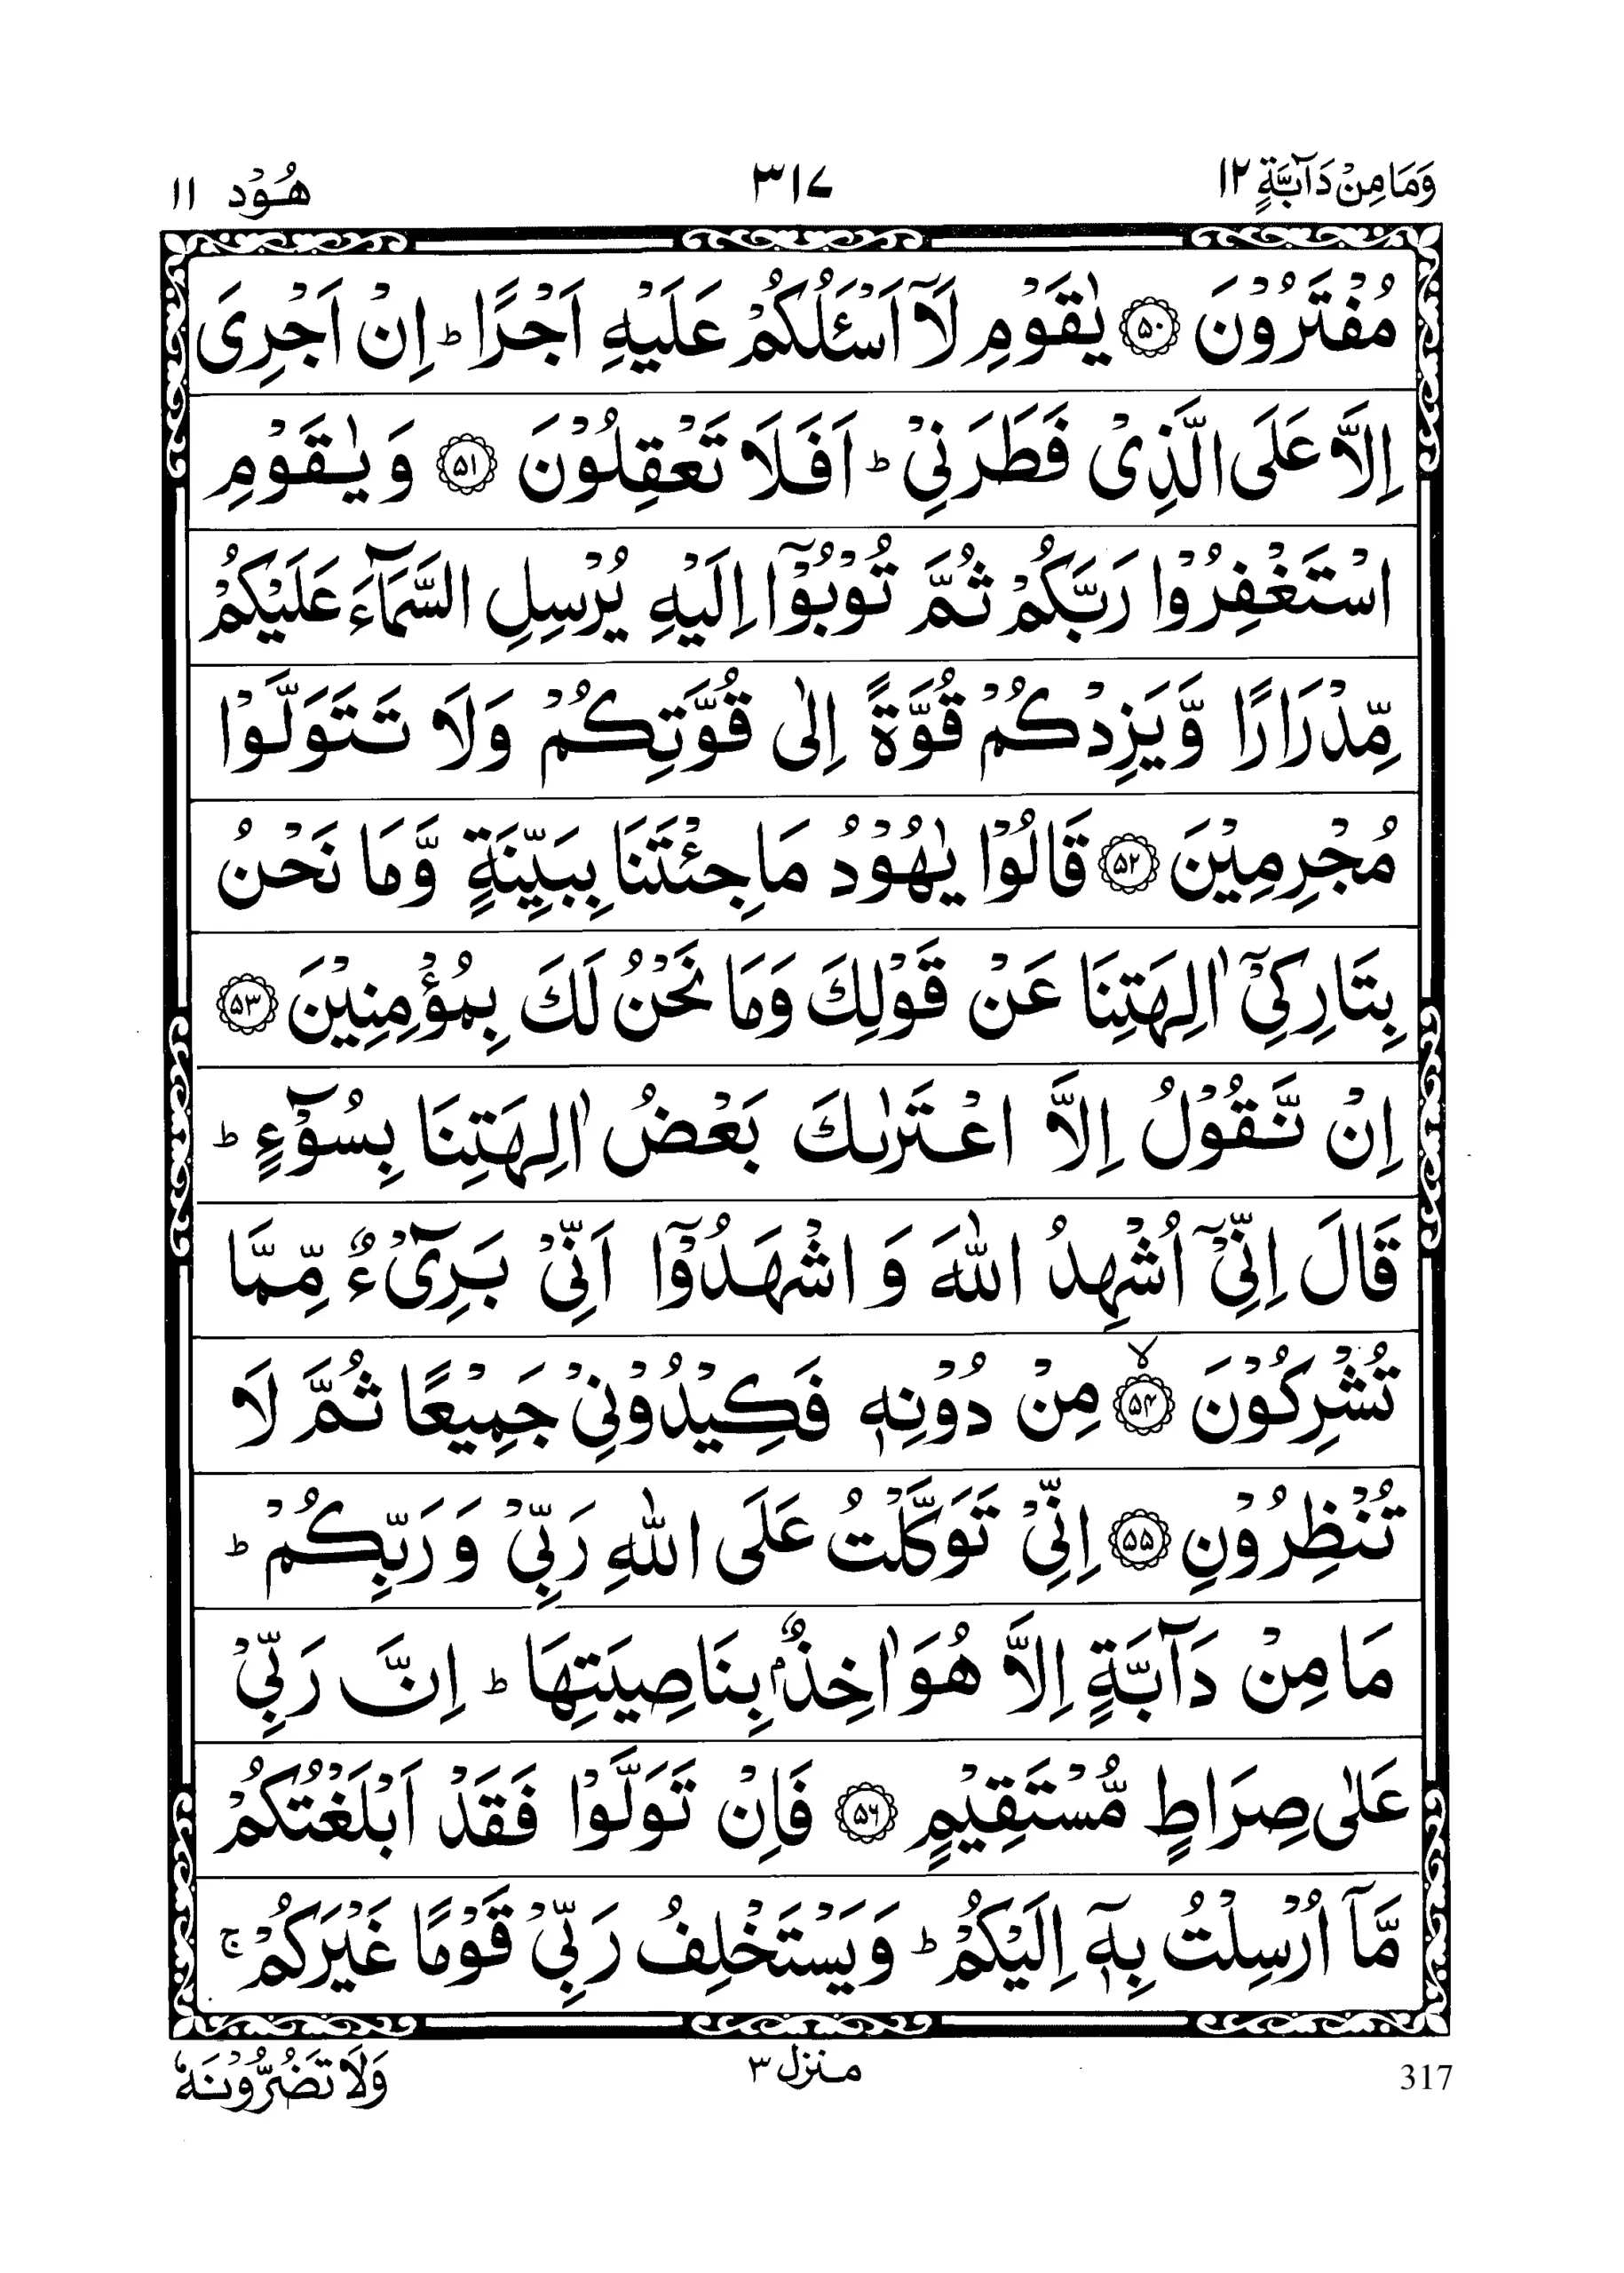 وَمَا مِنْ دَآبَّةٍ ١٢ ٣١٧ هُوْد ١١
مُفْتَرُوْنَ ﴿۵۰﴾ يٰقَوْمِ لَاۤ اَسْـَٔلُكُمْ عَلَيْهِ اَجْرًا ؕ اِنْ اَجْرِىَ
اِلَّا عَلَى الَّذِىْ فَطَرَنِىْ ؕ اَفَلَا تَعْقِلُوْنَ ﴿۵۱﴾ وَ يٰقَوْمِ
اسْتَغْفِرُوْا رَبَّكُمْ ثُمَّ تُوْبُوْۤا اِلَيْهِ يُرْسِلِ السَّمَآءَ عَلَيْكُمْ
مِّدْرَارًا وَّيَزِدْكُمْ قُوَّةً اِلٰى قُوَّتِكُمْ وَلَا تَتَوَلَّوْا
مُجْرِمِيْنَ ﴿۵۲﴾ قَالُوْا يٰهُوْدُ مَا جِئْتَنَا بِبَيِّنَةٍ وَّمَا نَحْنُ
بِتَارِكِىْۤ اٰلِهَتِنَا عَنْ قَوْلِكَ وَمَا نَحْنُ لَكَ بِمُؤْمِنِيْنَ ﴿۵۳﴾
اِنْ نَّقُوْلُ اِلَّا اعْتَرٰىكَ بَعْضُ اٰلِهَتِنَا بِسُوْٓءٍ ؕ
قَالَ اِنِّىْۤ اُشْهِدُ اللّٰهَ وَ اشْهَدُوْۤا اَنِّىْ بَرِىْٓءٌ مِّمَّا
تُشْرِكُوْنَ ﴿۵۴﴾ ۙ مِنْ دُوْنِهٖ فَكِيْدُوْنِىْ جَمِيْعًا ثُمَّ لَا
تُنْظِرُوْنِ ﴿۵۵﴾ اِنِّىْ تَوَكَّلْتُ عَلَى اللّٰهِ رَبِّىْ وَ رَبِّكُمْ ؕ
مَا مِنْ دَآبَّةٍ اِلَّا هُوَ اٰخِذٌۢ بِنَاصِيَتِهَا ؕ اِنَّ رَبِّىْ
عَلٰى صِرَاطٍ مُّسْتَقِيْمٍ ﴿۵۶﴾ فَاِنْ تَوَلَّوْا فَقَدْ اَبْلَغْتُكُمْ
مَّاۤ اُرْسِلْتُ بِهٖۤ اِلَيْكُمْ ؕ وَيَسْتَخْلِفُ رَبِّىْ قَوْمًا غَيْرَكُمْ ۚ
317 منزل ٣ وَلَا تَضُرُّوْنَهٗ